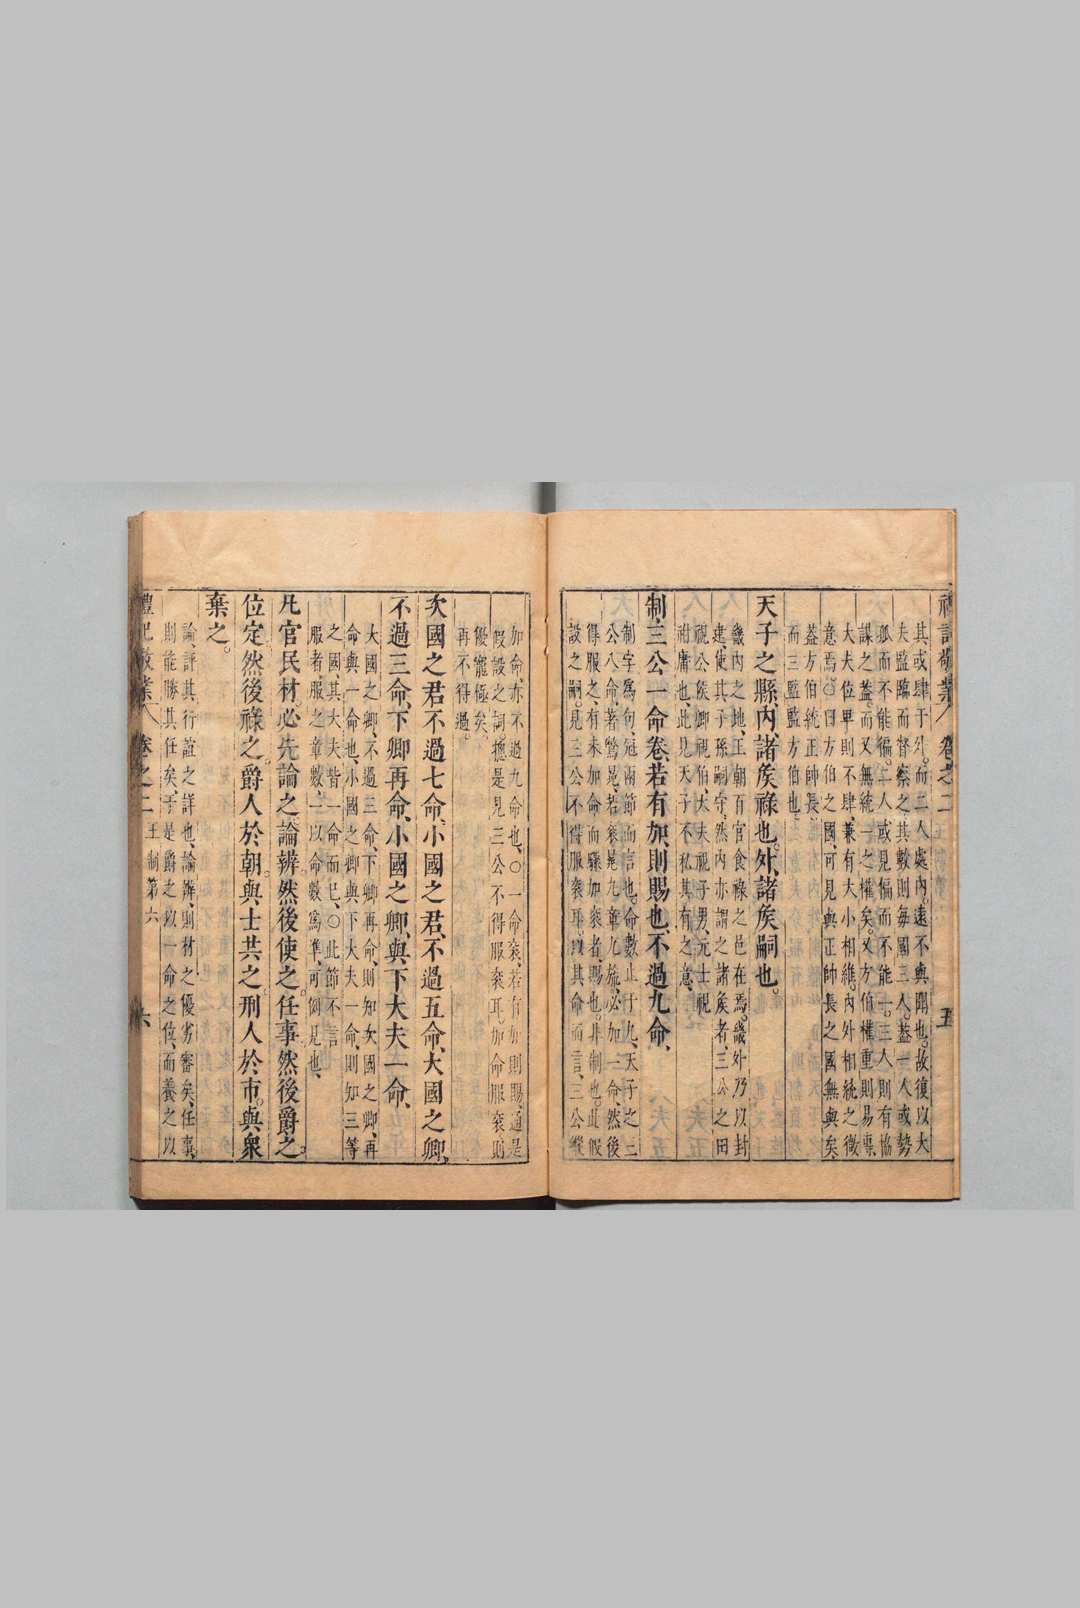 禮記敬業 卷之二 五
其或肆于外而三人處內遠不與聞也故復以大
夫監臨而督察之其數則每國三人蓋一人或勢
孤而不能徧二人或見偏而不能一三人則有協
謀之益而又無統一之權矣又方伯權重則易專
大夫位卑則不肆兼有大小相維內外相統之微
意焉○曰方伯之國可見與正帥長之國無與矣
蓋方伯統正帥長
而三監監方伯也
天子之縣內諸矦祿也外諸矦嗣也
畿內之地王朝百官食祿之邑在焉畿外乃以封
建使其子孫嗣守然內亦謂之諸矦者三公之田
視公矦卿視伯大夫視子男元士視
附庸也此見天子不私其有之意
制三公一命卷若有加則賜也不過九命
制字爲句冠兩節而言也命數止于九天子之三
公八命著鷩冕若衮冕九章九旒必加一命然後
得服之有未加命而驟加衮者賜也非制也此假
設之嗣見三公不得服衮耳以其命而言三公縱
加命亦不過九命也○一命衮若有加則賜適是
假設之詞摠是見三公不得服衮耳加命服衮則
優寵極矣
再不得過
次國之君不過七命小國之君不過五命大國之卿
不過三命下卿再命小國之卿與下大夫一命
大國之卿不過三命下卿再命則知次國之卿再
命與一命也小國之卿與下大夫一命則知三等
之國其大夫皆一命而已○此節不言
服者服之章數一以命數爲準可例見也
凡官民材必先論之論辨然後使之任事然後爵之
位定然後祿之爵人於朝與士共之刑人於市與衆
棄之
論評其行誼之詳也論辨則材之優劣審矣任事
則能勝其任矣于是爵之以一命之位而養之以
禮記敬業 卷之二 王制第六 六